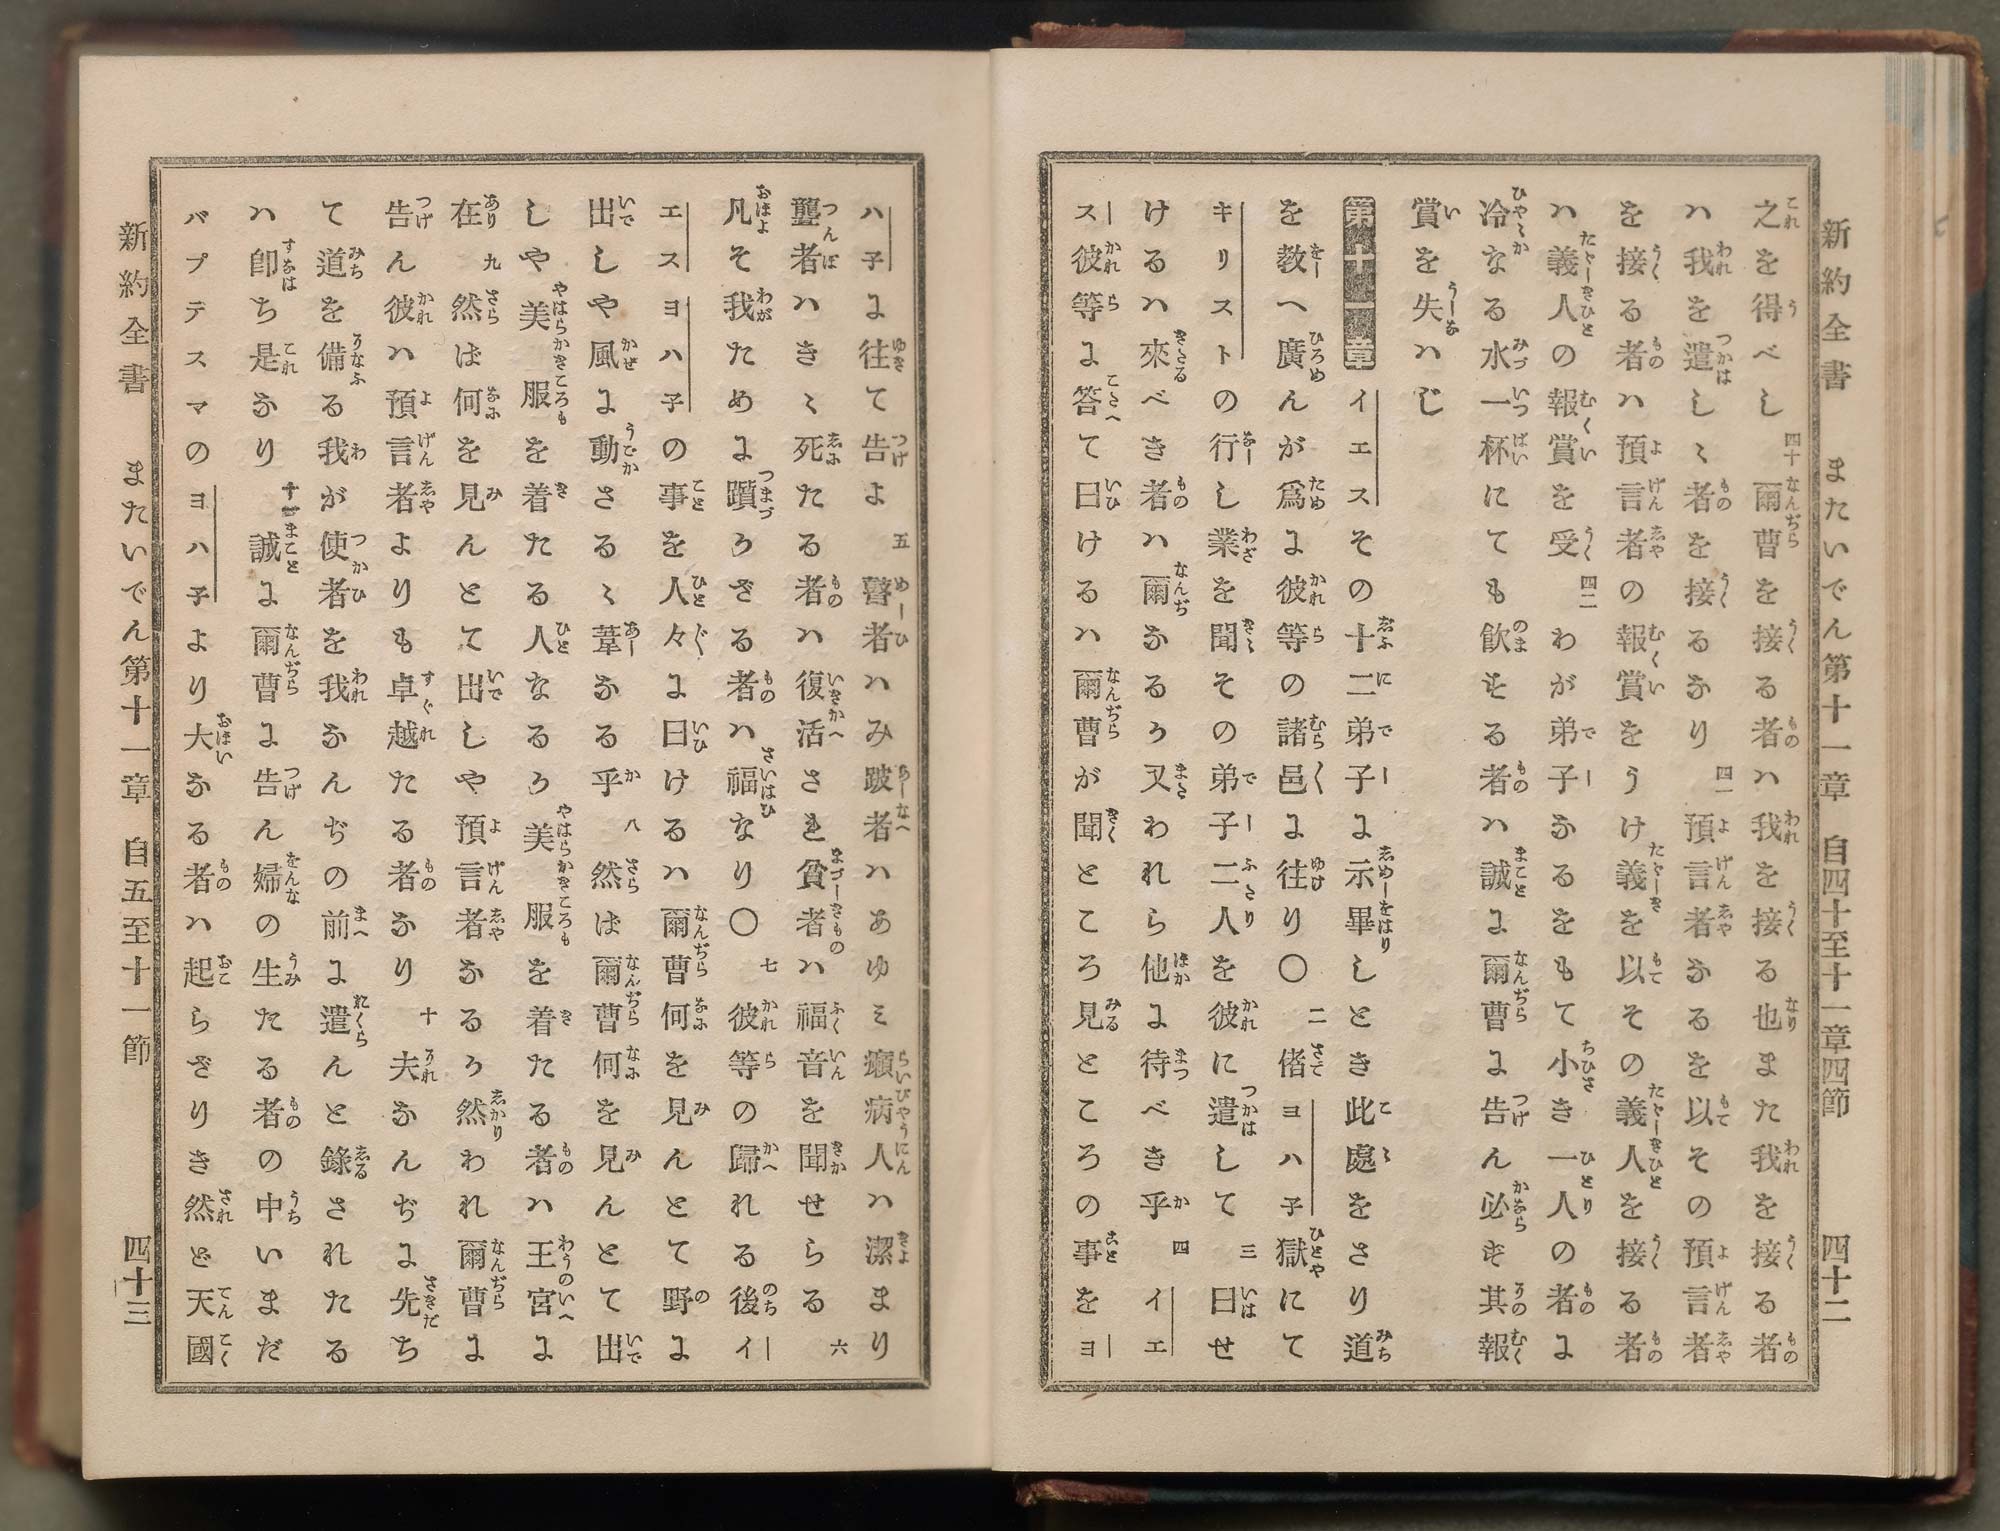 新約全書　またいでん第十一章　自四十至十一章四節　四十二
之を得べし 四十 爾曹を接る者ハ我を接る也また我を接る者
ハ我を遣しゝ者を接るなり 四一 預言者なるを以その預言者
を接る者ハ預言者の報賞をうけ義を以その義人を接る者
ハ義人の報賞を受 四二 わが弟子なるをもて小き一人の者に
冷なる水一杯にても飲する者ハ誠に爾曹に告ん必ず其報
賞を失ハじ
第十一章 イエスその十二弟子に示畢しとき此處をさり道
を教へ廣んが爲に彼等の諸邑に往り〇 二 偖ヨハ子獄にて
キリストの行し業を聞その弟子二人を彼に遣して 三 曰せ
けるハ來べき者ハ爾なるか又われら他に待べき乎 四 イエ
ス彼等に答て曰けるハ爾曹が聞ところ見ところの事をヨ
ハ子に往て告よ 五 瞽者ハみ跛者ハあゆミ癩病人ハ潔まり
聾者ハきゝ死たる者ハ復活され貧者ハ福音を聞せらる 六
凡そ我ために躓かざる者ハ福なり〇 七 彼等の歸れる後イ
エスヨハ子の事を人々に曰けるハ爾曹何を見んとて野に
出しや風に動さるゝ葦なる乎 八 然ば爾曹何を見んとて出
しや美服を着たる人なるか美服を着たる者ハ王宮に
在 九 然ば何を見んとて出しや預言者なるか然われ爾曹に
告ん彼ハ預言者よりも卓越たる者なり 十 夫なんぢに先ち
て道を備る我が使者を我なんぢの前に遣んと錄されたる
ハ卽ち是なり 十一 誠に爾曹に告ん婦の生たる者の中いまだ
バプテスマのヨハ子より大なる者ハ起らざりき然ど天國
新約全書　またいでん第十一章　自五至十一節　四十三